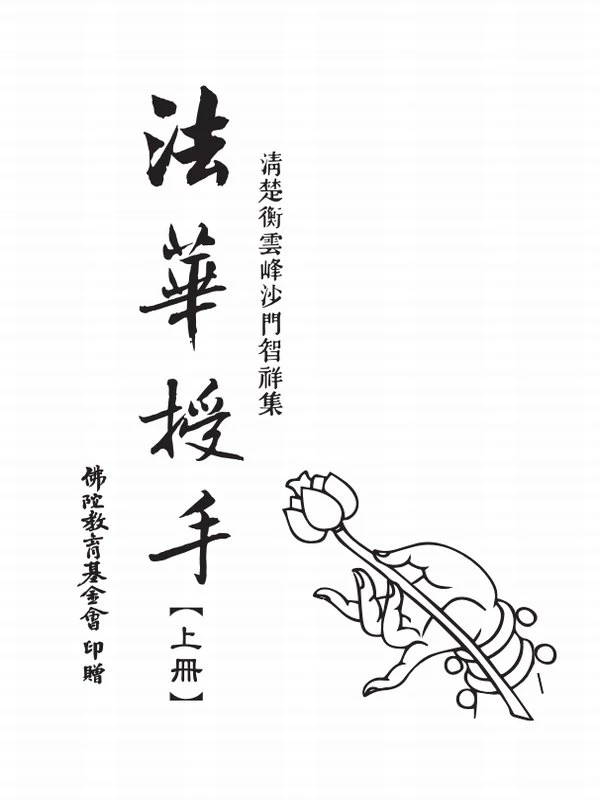 清楚衡雲峰沙門智祥集
法華授手
【上冊】
佛陀教育基金會 印贈